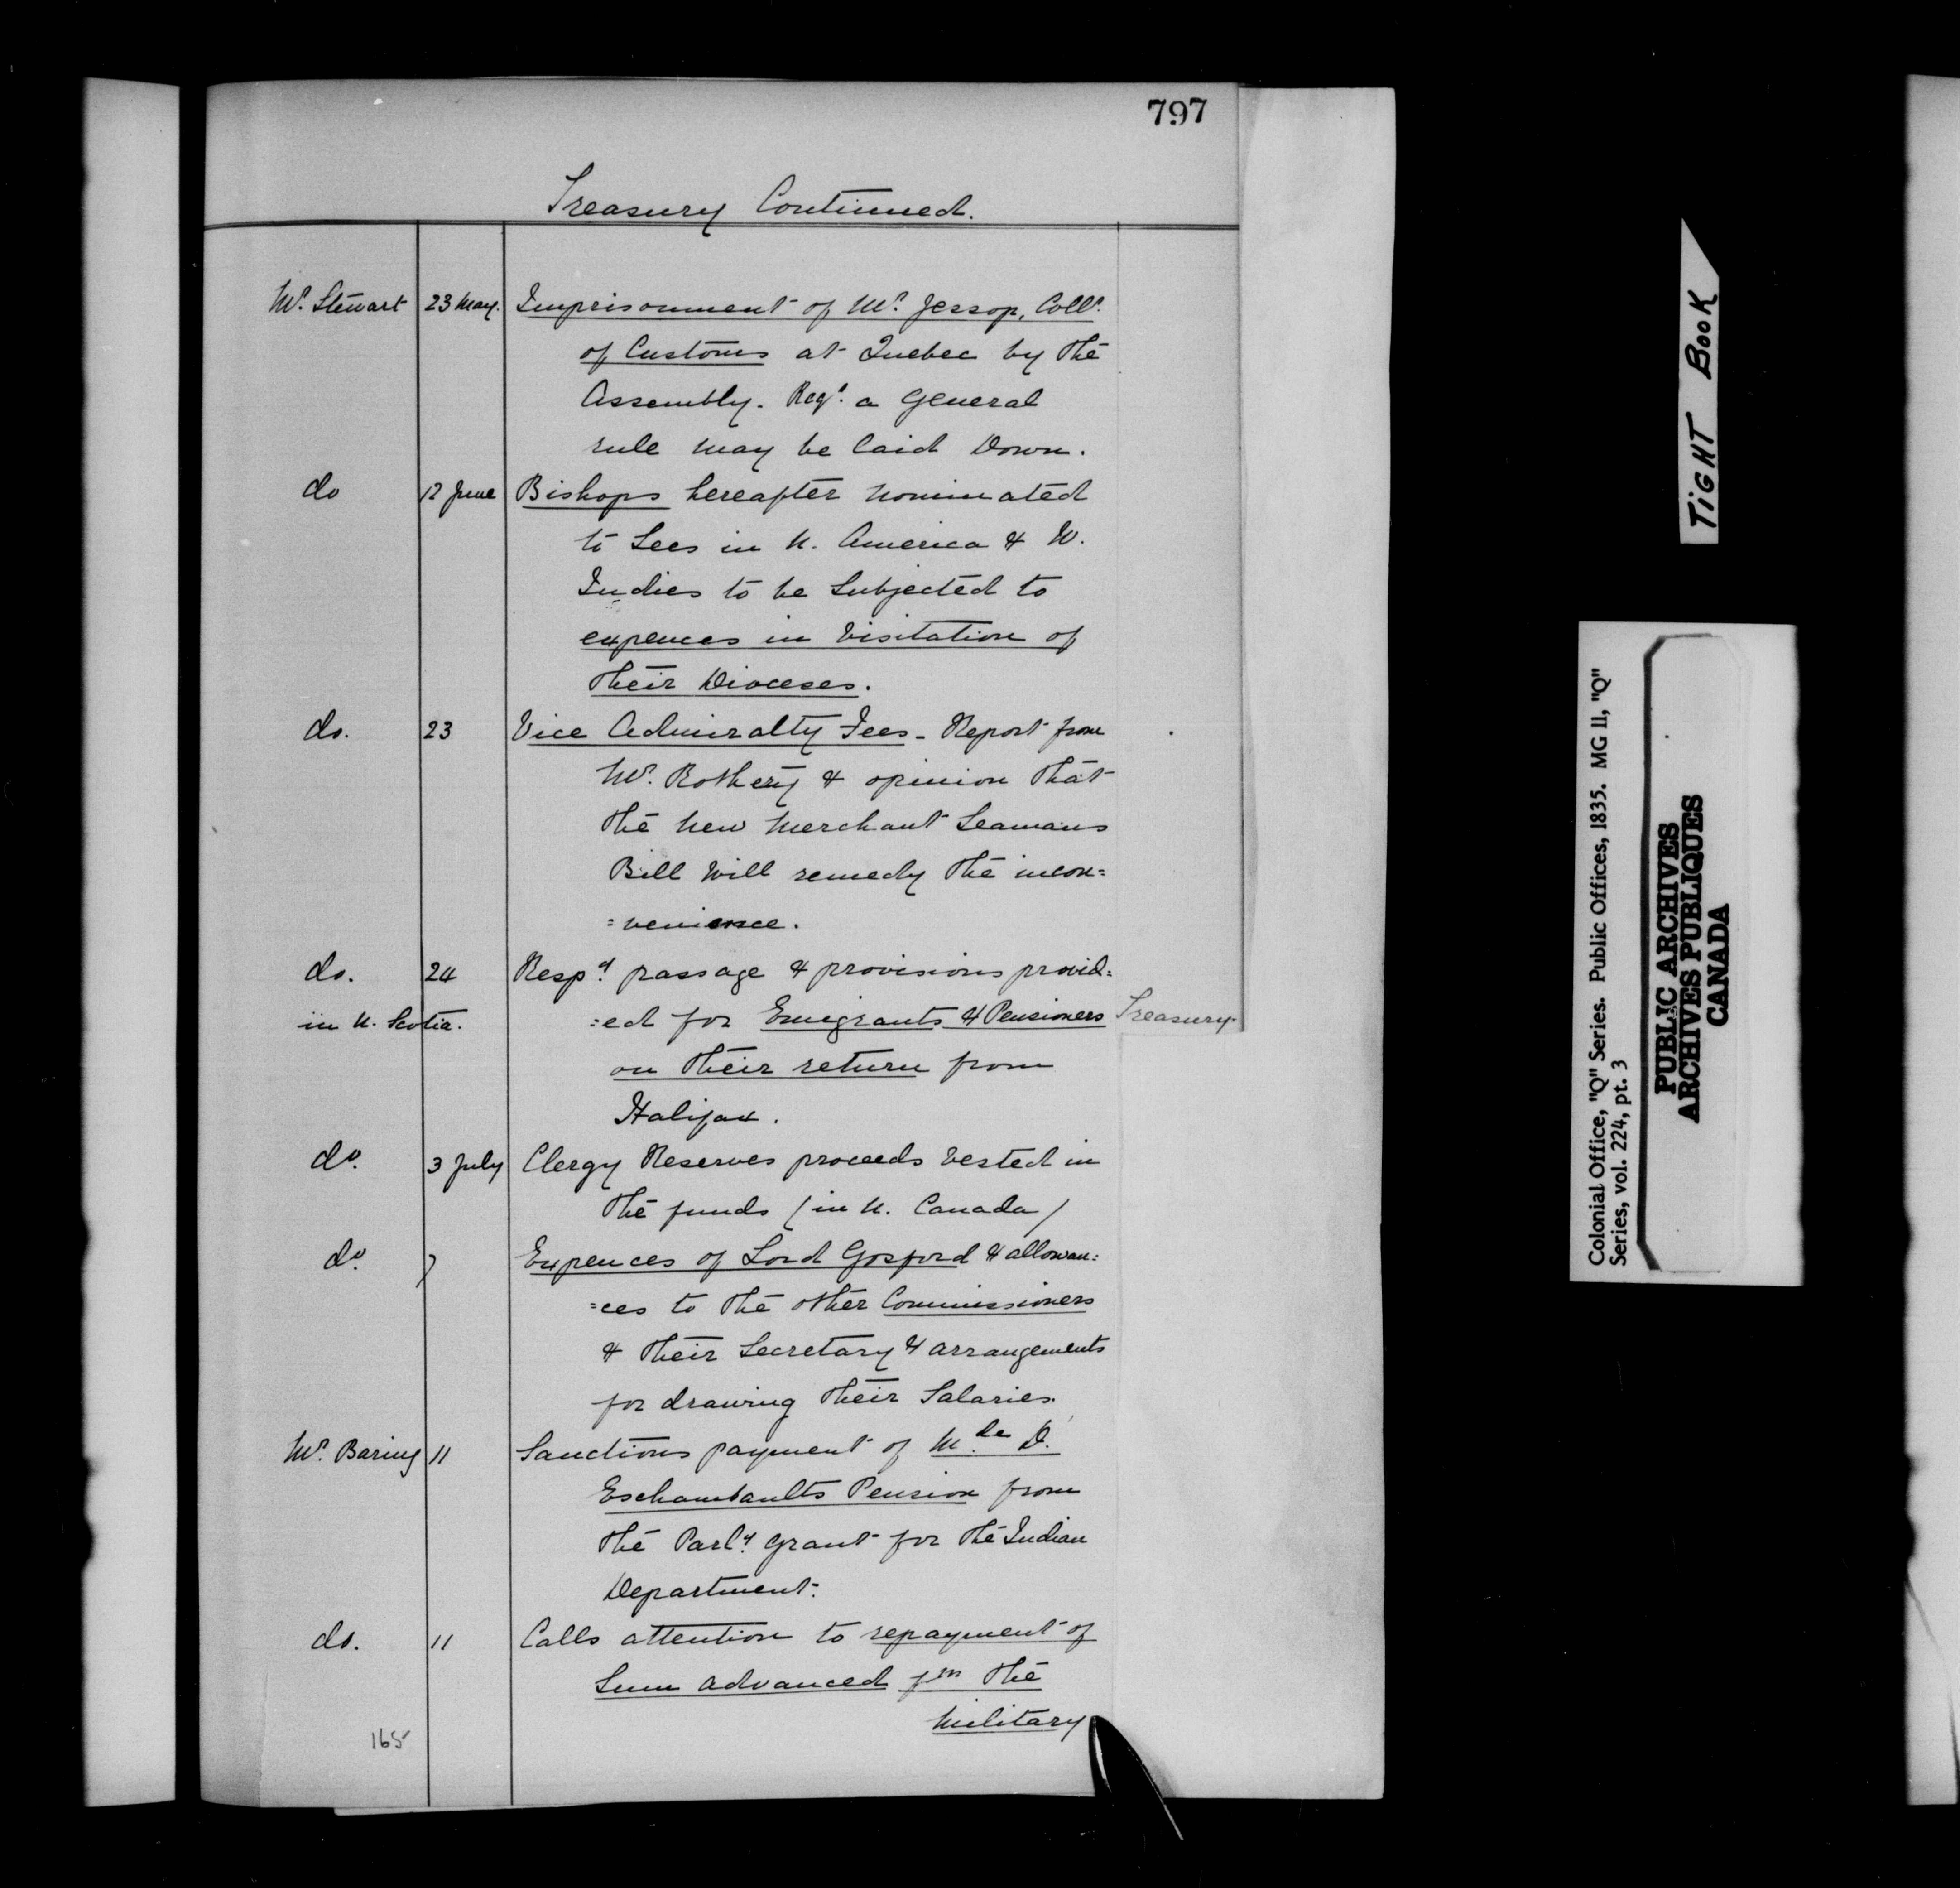 797
Treasury Continued.
Mr. Stewart 23 May. Imprisonment of Mr. Jessop, Collr.
of Customs at Quebec by the
Assembly. Reqt. a General
rule may be laid down.
do 12 June Bishops hereafter nominated
to Sees in N. America & W.
Indies to be Subjected to
expences in Visitation of
their Dioceses.
do. 23 Vice Admiralty Fees - Report from
Mr. Rothery & opinion that
the New Merchant Seamans
Bill will remedy the incon=
=venience.
do. 24 Respg. passage & provisions provid=
in N. Scotia. =ed for Emigrants & Pensioners Treasury.
on their return from
Halifax.
do. 3 July Clergy Reserves proceeds vested in
the funds (in U. Canada)
do. 7 Expences of Lord Gosford & allowan=
=ces to the other Commissioners
& their Secretary & arrangements
for drawing their Salaries.
Mr. Baring 11 Sanctions payment of Mde. D.
Eschambaults Pension from
the Parly. grant for the Indian
Department.
do. 11 Calls attention to repayment of
Sum advanced fm the
Military
165
TIGHT BOOK
Colonial Office, "Q" Series. Public Offices, 1835. MG 11, "Q"
Series, vol. 224, pt. 3
PUBLIC ARCHIVES
ARCHIVES PUBLIQUES
CANADA